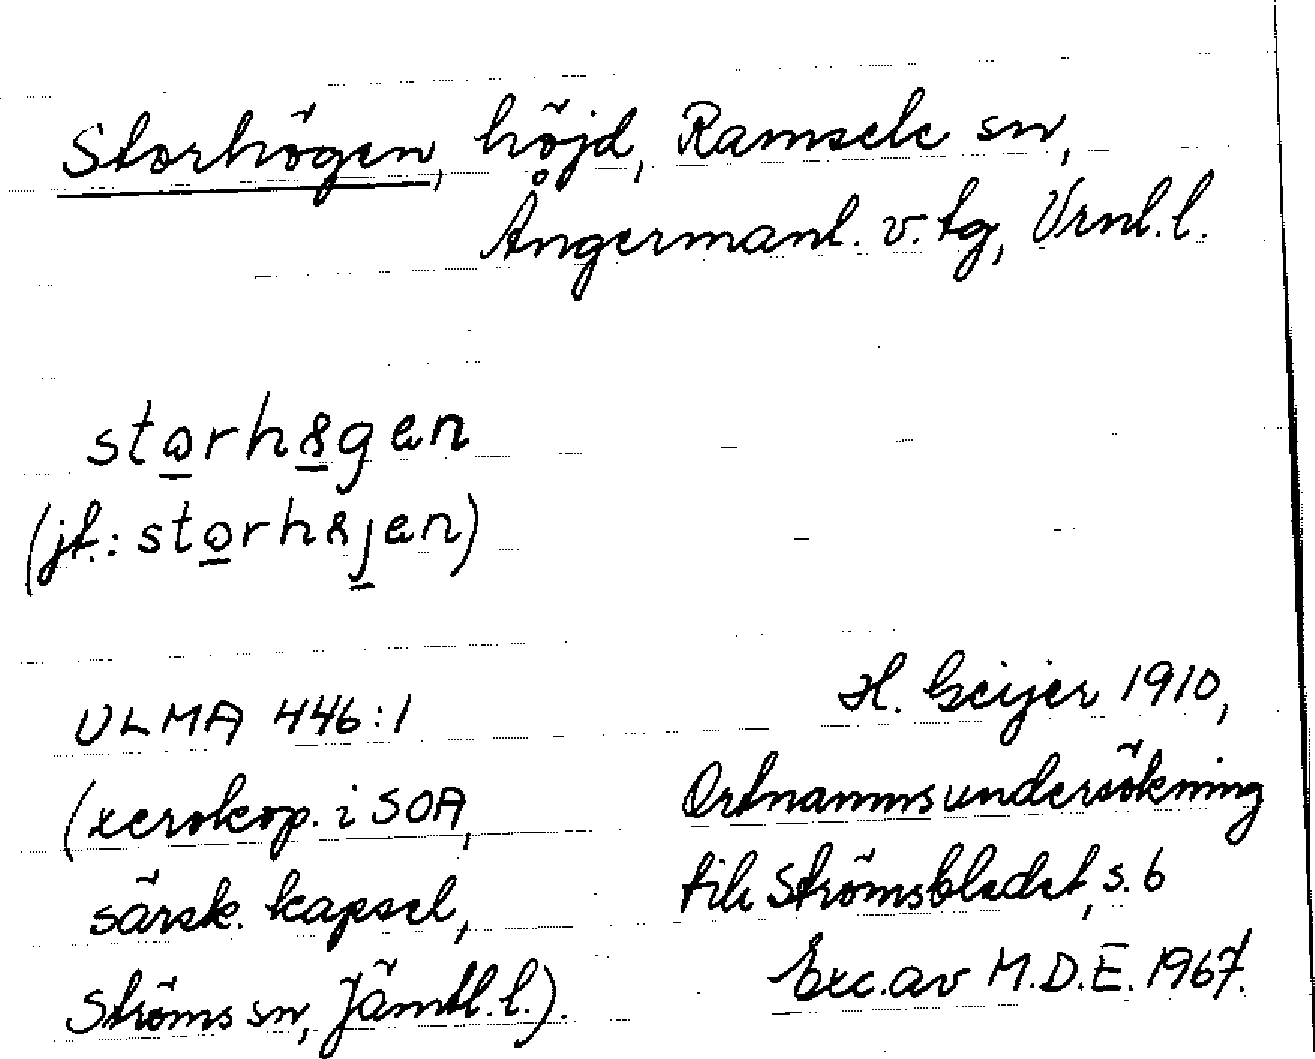 Storhögen, höjd, Ramsele sn,
Ångermanl. v. tg, Vrnl. l.
storhøgen
(jf.: storhøjen)
ULMA 446:1
(xerokop. i SOA,
särsk. kapsel,
Ströms sn, Jämtl. l.).
H. Geijer 1910,
Ortnammsundersökning
till Strömsbladet, s. 6
Exc. av M.D.E. 1967.